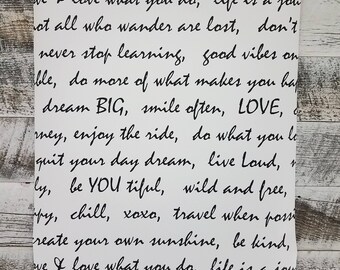 & love what you do, life is a jou
not all who wander are lost, don't
never stop learning, good vibes on
ble, do more of what makes you ha
dream BIG, smile often, LOVE,
rney, enjoy the ride, do what you lo
quit your day dream, live Loud, n
ly, be YOU tiful, wild and free,
py, chill, xoxo, travel when possi
create your own sunshine, be kind,
ve & love what you do, life is a jou